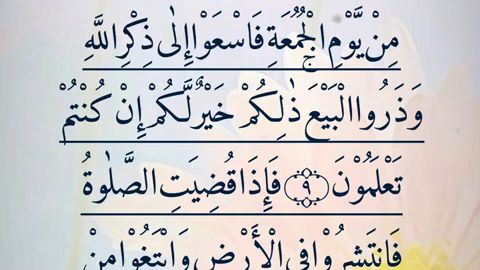 مِنْ يَّوْمِ الْجُمُعَةِ فَاسْعَوْا إِلٰى ذِكْرِ اللّٰهِ
وَذَرُوا الْبَيْعَ ذٰلِكُمْ خَيْرٌ لَّكُمْ إِنْ كُنْتُمْ
تَعْلَمُوْنَ ۝٩ فَإِذَا قُضِيَتِ الصَّلٰوةُ
فَانْتَشِرُوْا فِي الْأَرْضِ وَابْتَغُوْا مِنْ